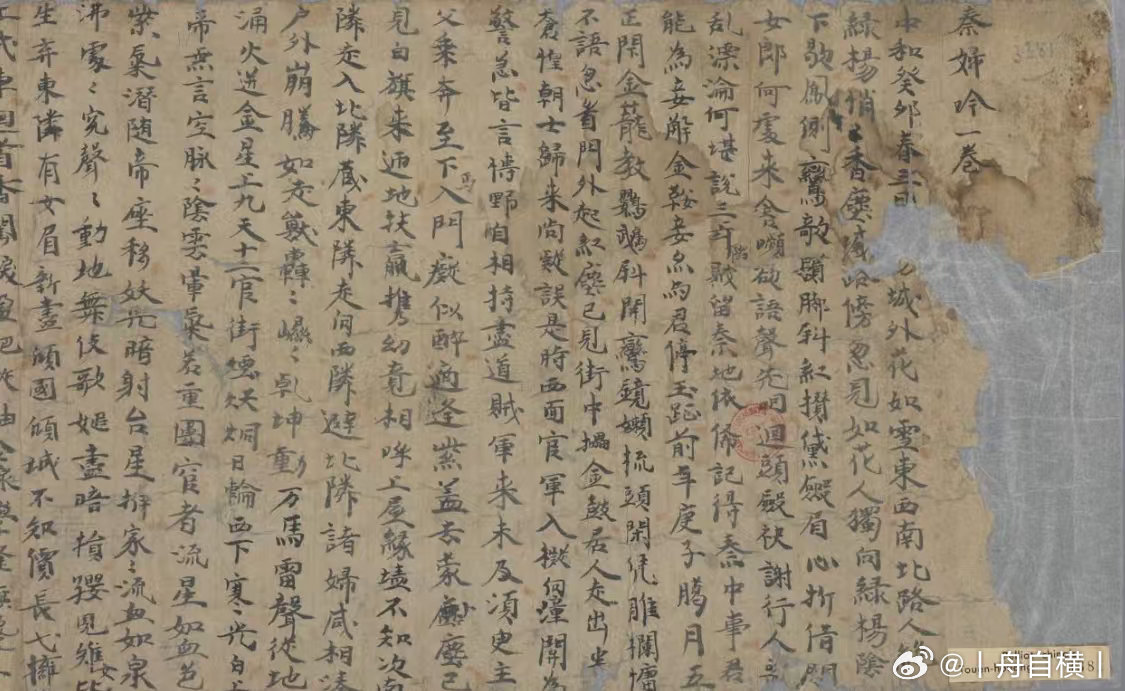 3381
秦婦吟一卷
中和癸卯春三月城外花如雪東西南北路人
綠楊悄〻香塵滅路傍忽見如花人獨向綠楊陰
下歇鳳側鸞欹鬢腳斜紅攢黛斂眉心折借問
女郎何處来含嚬欲語聲先咽迴頭斂袂謝行人
乱漂淪何堪說三年陷賊留秦地依俙記得秦中事君
能為妾解金鞍妾亦與君停玉趾前年庚子臘月五
正閇金籠教鸚鵡斜開鸞鏡嬾梳頭閑凭雕欄慵
不語忽看門外起紅塵已見街中擂金鼓居人走出半
蒼惶朝士歸来尚疑誤是時西面官軍入擬向潼關為
警急皆言博野自相持盡道賊軍来未及湏臾主
父乘奔至下馬入門癡似醉適逢紫盖去蒙塵已
見白旗来迊地扶羸携幼竟相呼上屋緣墻不知次南
隣走入北隣藏東隣走向西隣避北隣諸婦咸相湊
户外崩騰如走獸轟〻崐〻乾坤動万馬雷聲從地
涌火迸金星上九天十二官街煙烘烔日輪西下寒光白上
帝無言空脉〻陰雲暈氣若重圍宦者流星如血色
紫氣潜随帝座移妖光暗射台星拆家〻流血如泉
沸處〻冤聲〻動地舞伎歌姬盡暗捐嬰兒稚女皆
生弃東隣有女眉新畫傾國傾城不知價長戈擁
戎車迴首香閨淚盈把
@丨舟自横丨